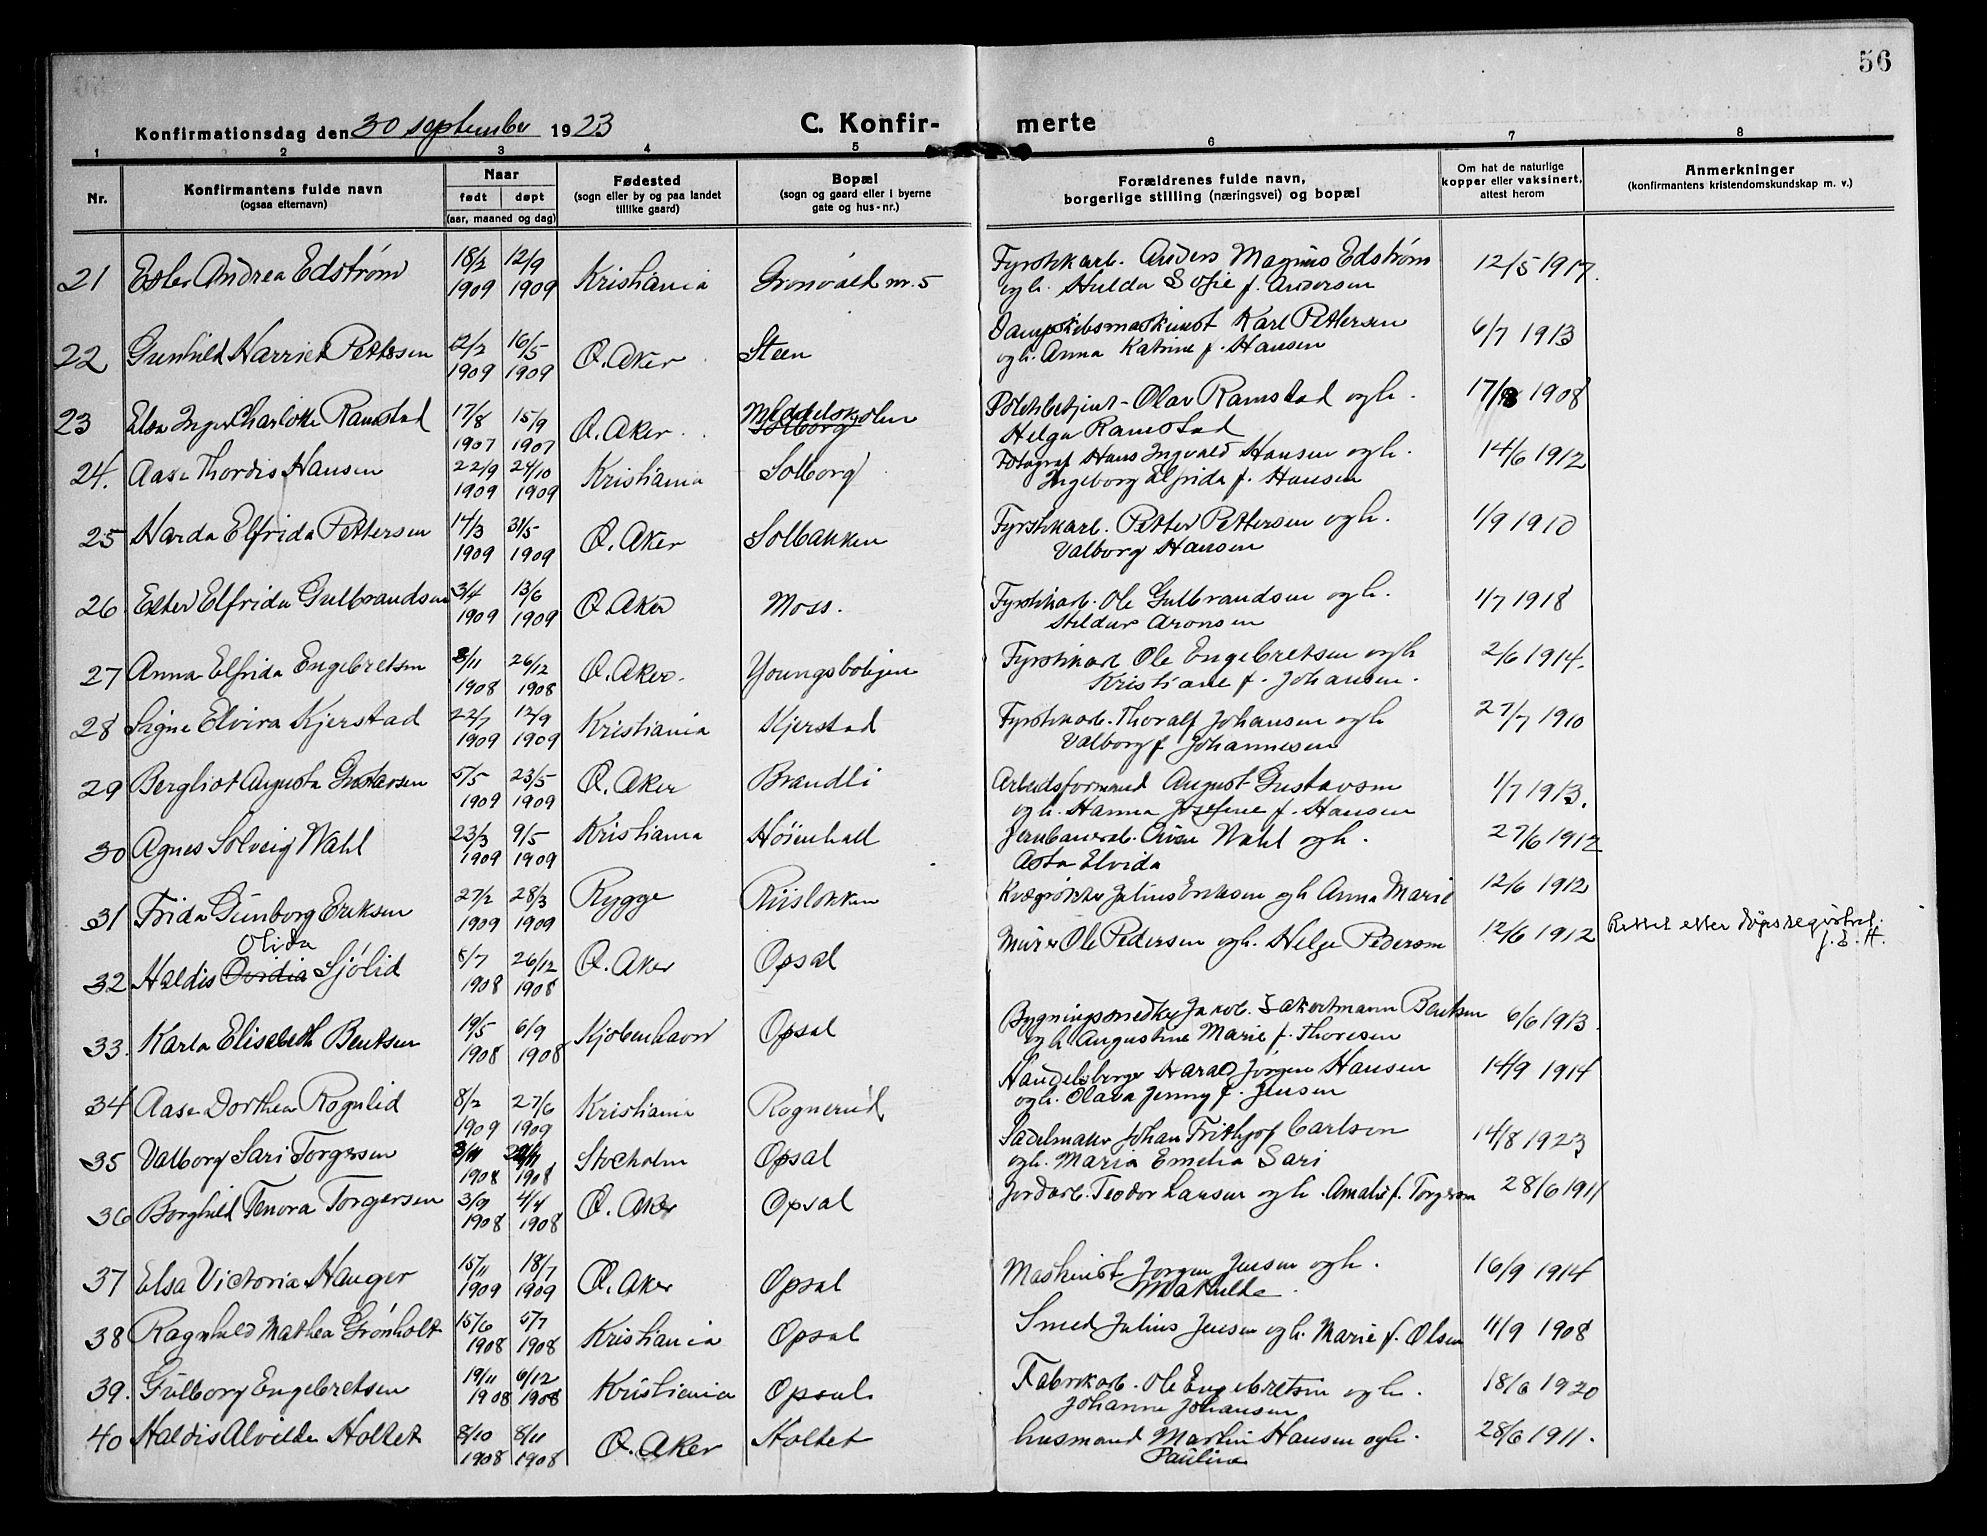 56
Konfirmationsdag den 30 september 1923
C. Konfir- merte
1 2 3 4 5 6 7 8
Nr.
Konfirmantens fulde navn
(ogsaa efternavn)
Naar
født døpt
(aar, maaned og dag)
Fødested
(sogn eller by og paa landet
tillike gaard)
Bopæl
(sogn og gaard eller i byerne
gate og hus-nr.)
Forældrenes fulde navn,
borgerlige stilling (næringsvei) og bopæl
Om hat de naturlige
kopper eller vaksinert,
attest herom
Anmerkninger
(konfirmantens kristendomskundskap m. v.)
21 Ester Andrea Edstrøm 18/2 1909 12/9 1909 Kristiania Grønvold nr. 5 Fyrstikarb. Anders Magnus Edstrøm 12/5 1917.
og h. Hulda Sofie f. Andersen
22 Gunhild Harriet Pettersen 12/2 1909 16/5 1909 Ø. Aker Steen Dampskibsmaskinist Karl Pettersen 6/7 1913
og h. Anna Katrine f. Hansen
23 Elsa Inger Charlotte Ramstad 17/8 1907 15/9 1907 Ø. Aker. Middelskolen Solborg Politibetjent Olav Ramstad og h. 17/8 1908
Helga Ramstad
24. Aase Thordis Hansen 22/9 1909 24/10 1909 Kristiania Solborg Fotograf Hans Ingvald Hansen og h. 14/6 1912
Ingeborg Elfrida f. Hansen
25 Harda Elfrida Pettersen 14/3 1909 31/5 1909 Ø. Aker Solbakken Fyrstikarb. Petter Pettersen og h. 1/9 1910
Valborg Hansen
26 Ester Elfrida Gulbrandsen 3/4 1909 13/6 1909 Ø. Aker Moss. Fyrstikarb. Ole Gulbrandsen og h. 1/7 1918
Hildur Aronsen
27 Anna Elfrida Engebretsen 8/11 1908 26/12 1908 Ø. Aker. Youngsbolijen Fyrstikarb Ole Engebretsen og h 2/6 1914.
Kristiane f. Johansen.
28 Signe Elvira Kjerstad 22/7 1909 12/9 1909 Kristiania Kjerstad Fyrstikarb. Thoralf Johansen og h 27/7 1910
Valborg f Johannesen
29 Bergliot Augusta Gustavsen 5/5 1909 23/5 1909 Ø. Aker Brandli Arbeidsformand August Gustavsen 1/7 1913.
og h. Hanna Josefine f. Hansen
30 Agnes Solveig Wahl 23/3 1909 9/5 1909 Kristiania Høienhall Jernbanearb. Wahl og h. 27/6 1912
Asta Elvida
31 Frida Gunborg Eriksen 27/2 1909 28/3 1909 Rygge Riisløkken Kvægrøkter Julius Eriksen og h Anna Marie 12/6 1912
32 Haldis Ovidia Olida Sjølid 8/7 1908 26/12 1908 Ø. Aker Opsal Murer Ole Pedersen og h. Helga Pedersen 12/6 1912 Rettet etter dåpsregistret. J. E. H.
33. Karla Elisabeth Bentsen 19/5 1908 6/9 1908 Kjøbenhavn Opsal Bygningssnedker Jakob Bentsen 6/6 1913.
og h Augustine Marie f. Thoresen
34 Aase Dorthea Rognlid 8/2 1909 27/6 1909 Kristiania Rognerud Handelsborger Harald Jørgen Hansen 14/9 1914
og h. Olava Jenny f. Jensen
35 Valborg Sari Torgersen 1908 1908 Stocholm Opsal Sadelmaker Johan Frithjof Carlson 14/8 1923
og h. Maria Emelia Sari
36 Borghild Tenora Torgersen 3/9 1908 4/4 1908 Ø. Aker Opsal Jordarb. Teodor Larsen og h. Amalie f. Torgersen 28/6 1911
37 Elsa Victoria Hauger 15/11 1909 18/7 1909 Ø. Aker Opsal Maskinist Jørgen Jensen og h. 16/9 1914
Mathilde.
38 Ragnhild Mathea Grønholt 15/6 1908 5/7 1908 Kristiania Opsal Smed Julius Jensen og h. Marie f. Olsen 11/9 1908
39. Gulborg Engebretsen 19/11 1908 6/12 1908 Kristiania Opsal Fabrikarb. Ole Engebretsen og h. 18/6 1920
Johanne Johansen
40 Haldis Alvilde Holtet 8/10 1908 8/11 1908 Ø. Aker Holtet husmand Martin Hansen og h. 28/6 1911.
Pauline